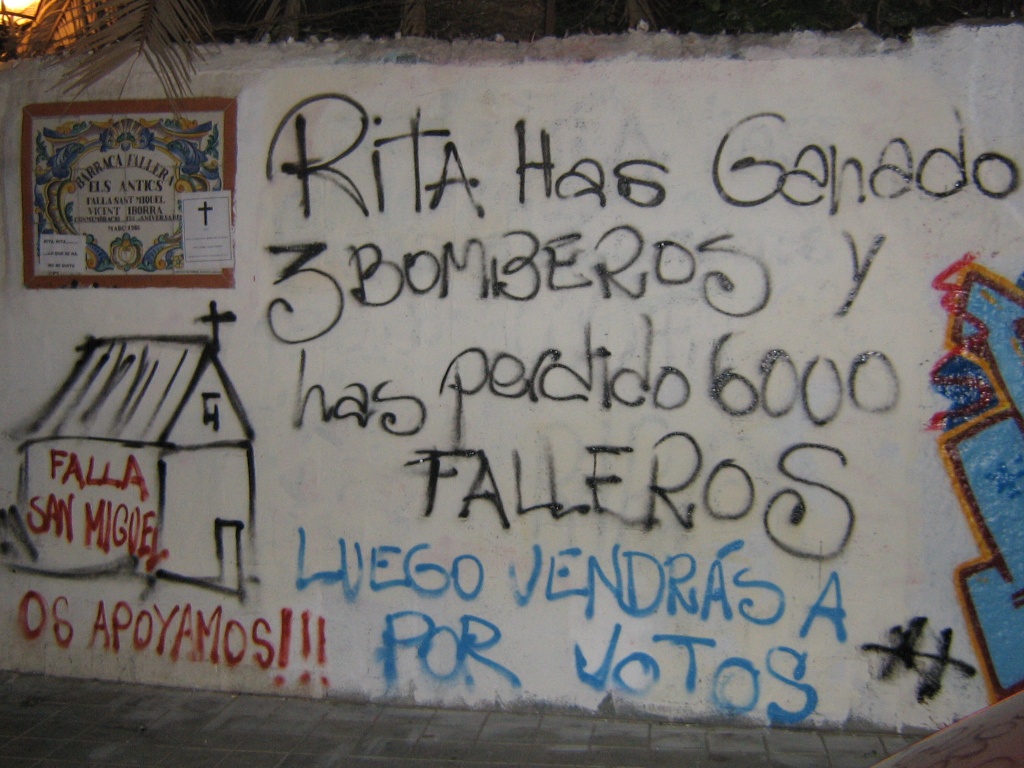 BARRACA FALLERA
ELS ANTICS
FALLA SANT MIQUEL
VICENT IBORRA
MARÇ 1981
RITA Has Ganado
3 BOMBEROS y
has perdido 6000
FALLEROS
LUEGO VENDRÁS A
POR VOTOS
FALLA
SAN MIGUEL
OS APOYAMOS!!!